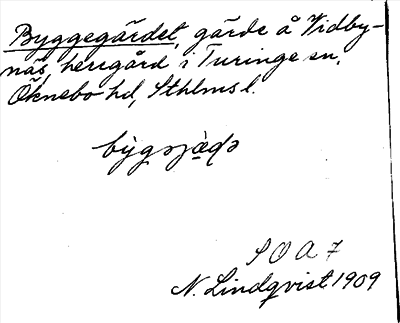 Byggegärdet, gärde å Vidby-
näs, herrgård i Turinge sn,
Öknebo hd, Sthlms l.
bỳgəjàḍə
S O A 7
N. Lindqvist 1909